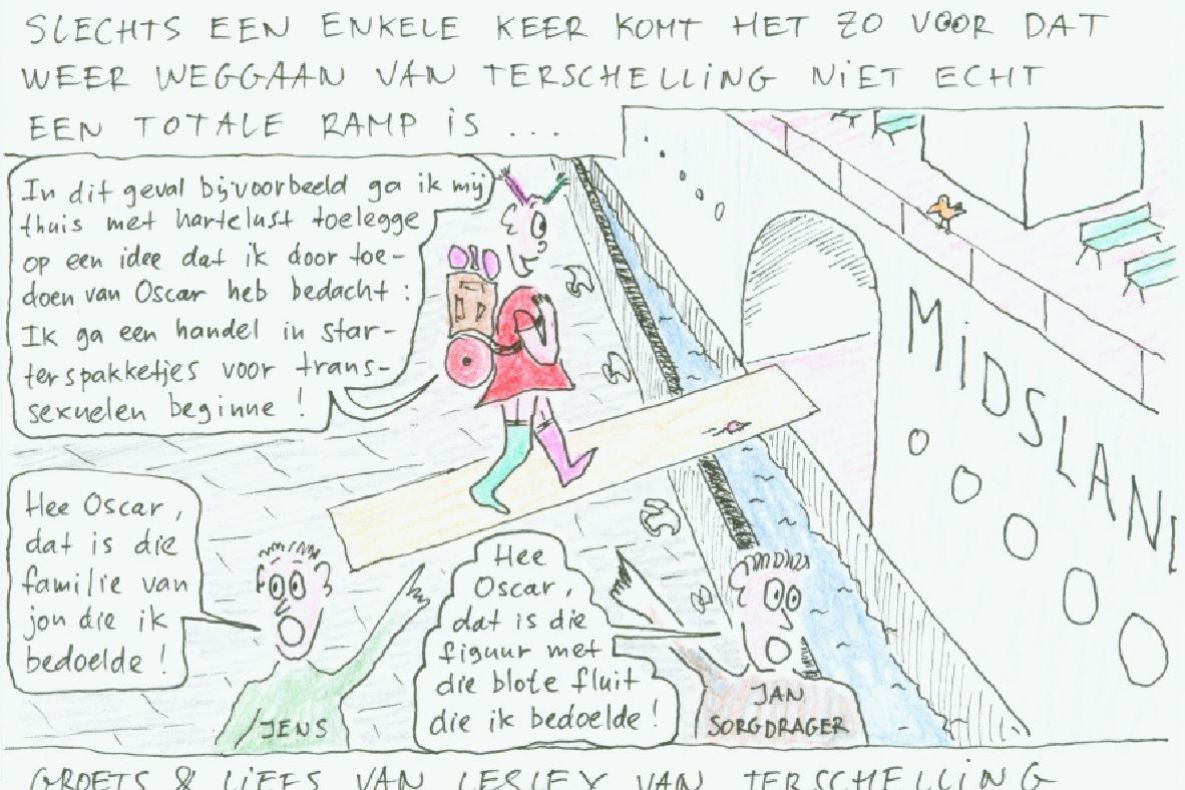 SLECHTS EEN ENKELE KEER KOMT HET ZO VOOR DAT
WEER WEGGAAN VAN TERSCHELLING NIET ECHT
EEN TOTALE RAMP IS ...
In dit geval bijvoorbeeld ga ik mij
thuis met hartelust toelegge
op een idee dat ik door toe-
doen van Oscar heb bedacht :
Ik ga een handel in star-
terspakketjes voor trans-
sexuelen beginne !
MIDSLAN
Hee Oscar,
dat is die
familie van
jou die ik
bedoelde !
Hee
Oscar,
dat is die
figuur met
die blote fluit
die ik bedoelde !
JENS
JAN
SORGDRAGER
GROETS & LIEFS VAN LESLEY VAN TERSCHELLING